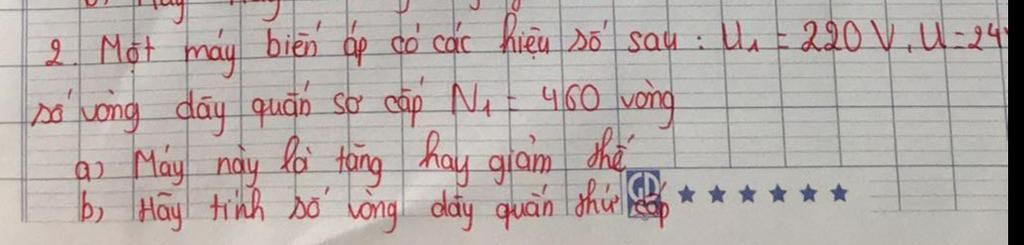 2. Một máy biến áp có các hiệu số sau: U₁ = 220 V, U = 24
số vòng dây quấn sơ cấp N₁ = 460 vòng
a) Máy này là tăng hay giảm thế
b, Hãy tính số vòng dây quấn thứ cấp